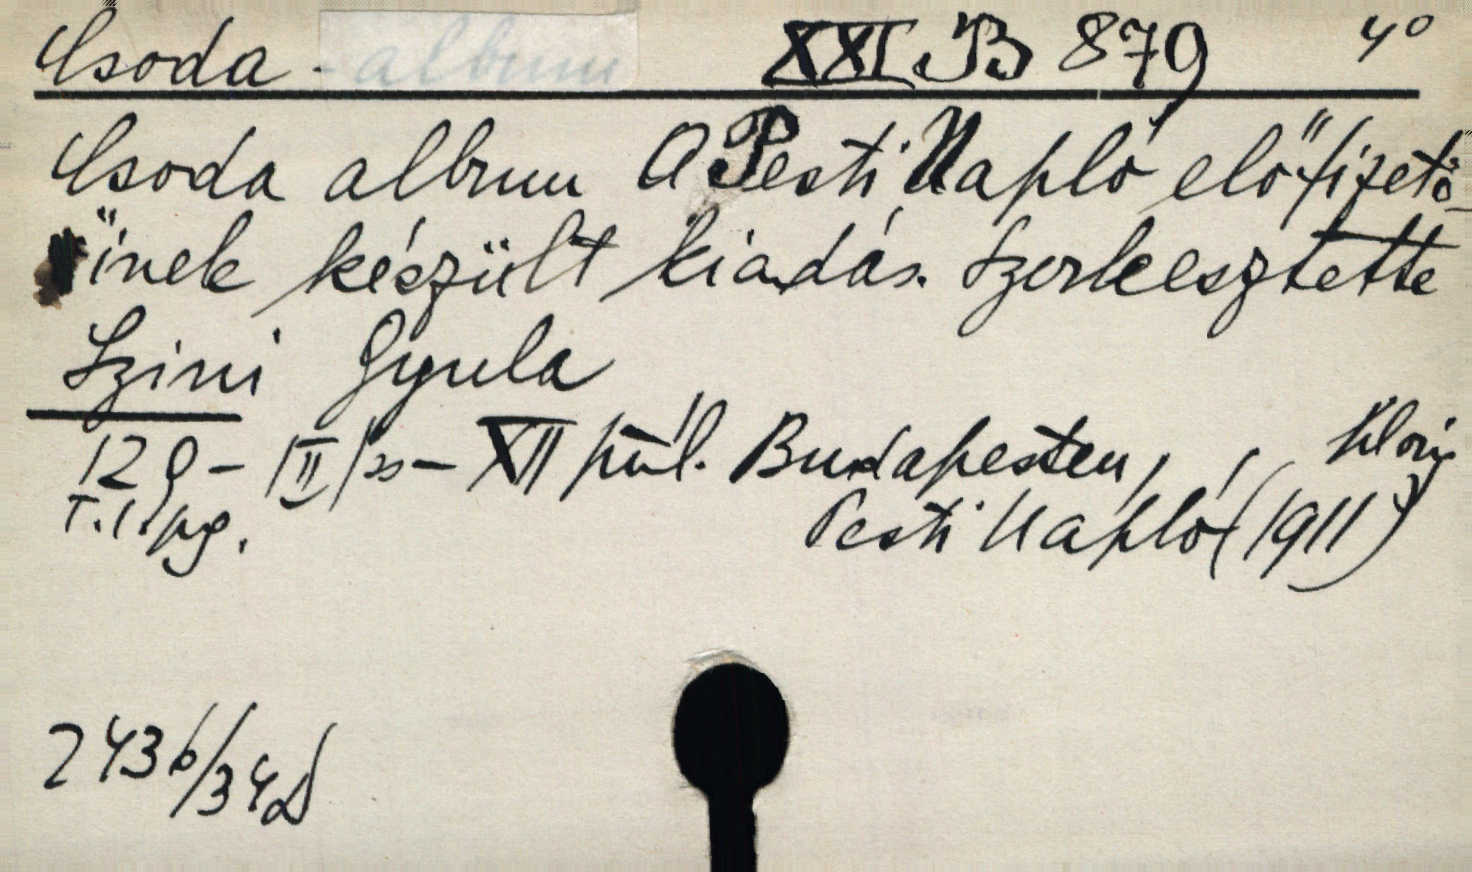 Csoda - album XXI.B 879 4°
Csoda album A Pesti Napló előfizető-
inek készült kiadás. Szerkesztette
Szini Gyula
129 - |II| - XII Budapesten,
T. l. pg. Pesti Napló (1911)
2436/34